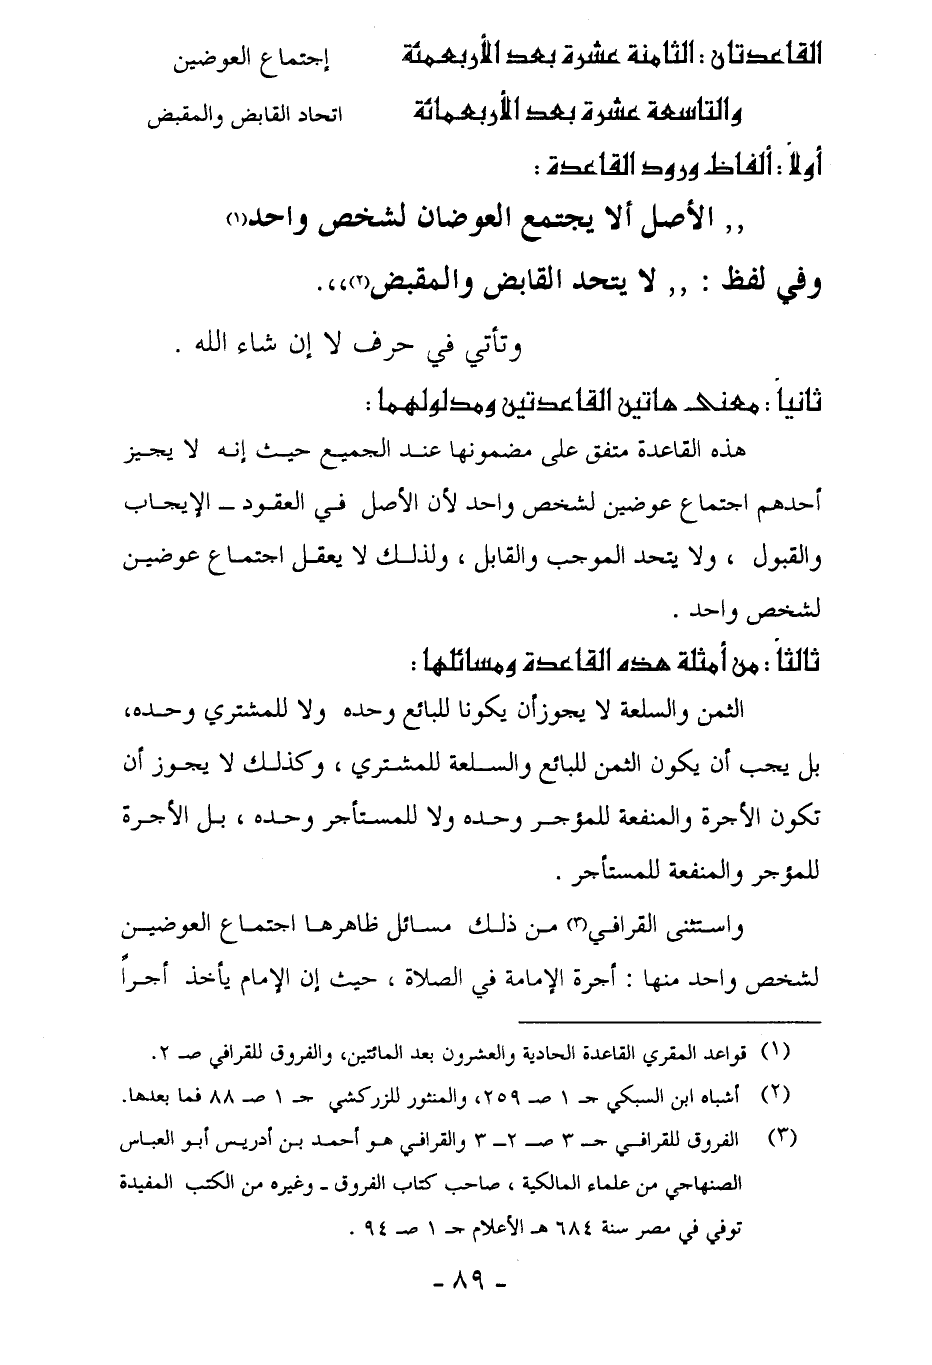 القاعدتان : الثامنة عشرة بعد الأربعمئة إجتماع العوضين
والتاسعة عشرة بعد الأربعمائة اتحاد القابض والمقبض
أولاً : ألفاظ ورود القاعدة :
,, الأصل ألا يجتمع العوضان لشخص واحد(١)
وفي لفظ : ,, لا يتحد القابض والمقبض(٢)،،.
وتأتي في حرف لا إن شاء الله .
ثانياً : معنى هاتين القاعدتين ومدلولهما :
هذه القاعدة متفق على مضمونها عند الجميع حيث إنه لا يجيز
أحدهم اجتماع عوضين لشخص واحد لأن الأصل في العقود – الإيجاب
والقبول ، ولا يتحد الموجب والقابل ، ولذلك لا يعقل اجتماع عوضين
لشخص واحد .
ثالثاً : من أمثلة هذه القاعدة ومسائلها :
الثمن والسلعة لا يجوز أن يكونا للبائع وحده ولا للمشتري وحده،
بل يجب أن يكون الثمن للبائع والسلعة للمشتري ، وكذلك لا يجوز أن
تكون الأجرة والمنفعة للمؤجر وحده ولا للمستأجر وحده ، بل الأجرة
للمؤجر والمنفعة للمستأجر .
واستثنى القرافي(٣) من ذلك مسائل ظاهرها اجتماع العوضين
لشخص واحد منها : أجرة الإمامة في الصلاة ، حيث إن الإمام يأخذ أجراً
(١) قواعد المقري القاعدة الحادية والعشرون بعد المائتين، والفروق للقرافي صـ ٢.
(٢) أشباه ابن السبكي حـ ١ صـ ٢٥٩، والمنثور للزركشي حـ ١ صـ ٨٨ فما بعدها.
(٣) الفروق للقرافي حـ ٣ صـ ٢ـ ٣ والقرافي هو أحمد بن أدريس أبو العباس
الصنهاجي من علماء المالكية ، صاحب كتاب الفروق ـ وغيره من الكتب المفيدة
توفي في مصر سنة ٦٨٤ هـ الأعلام حـ ١ صـ ٩٤ .
- ٨٩ -